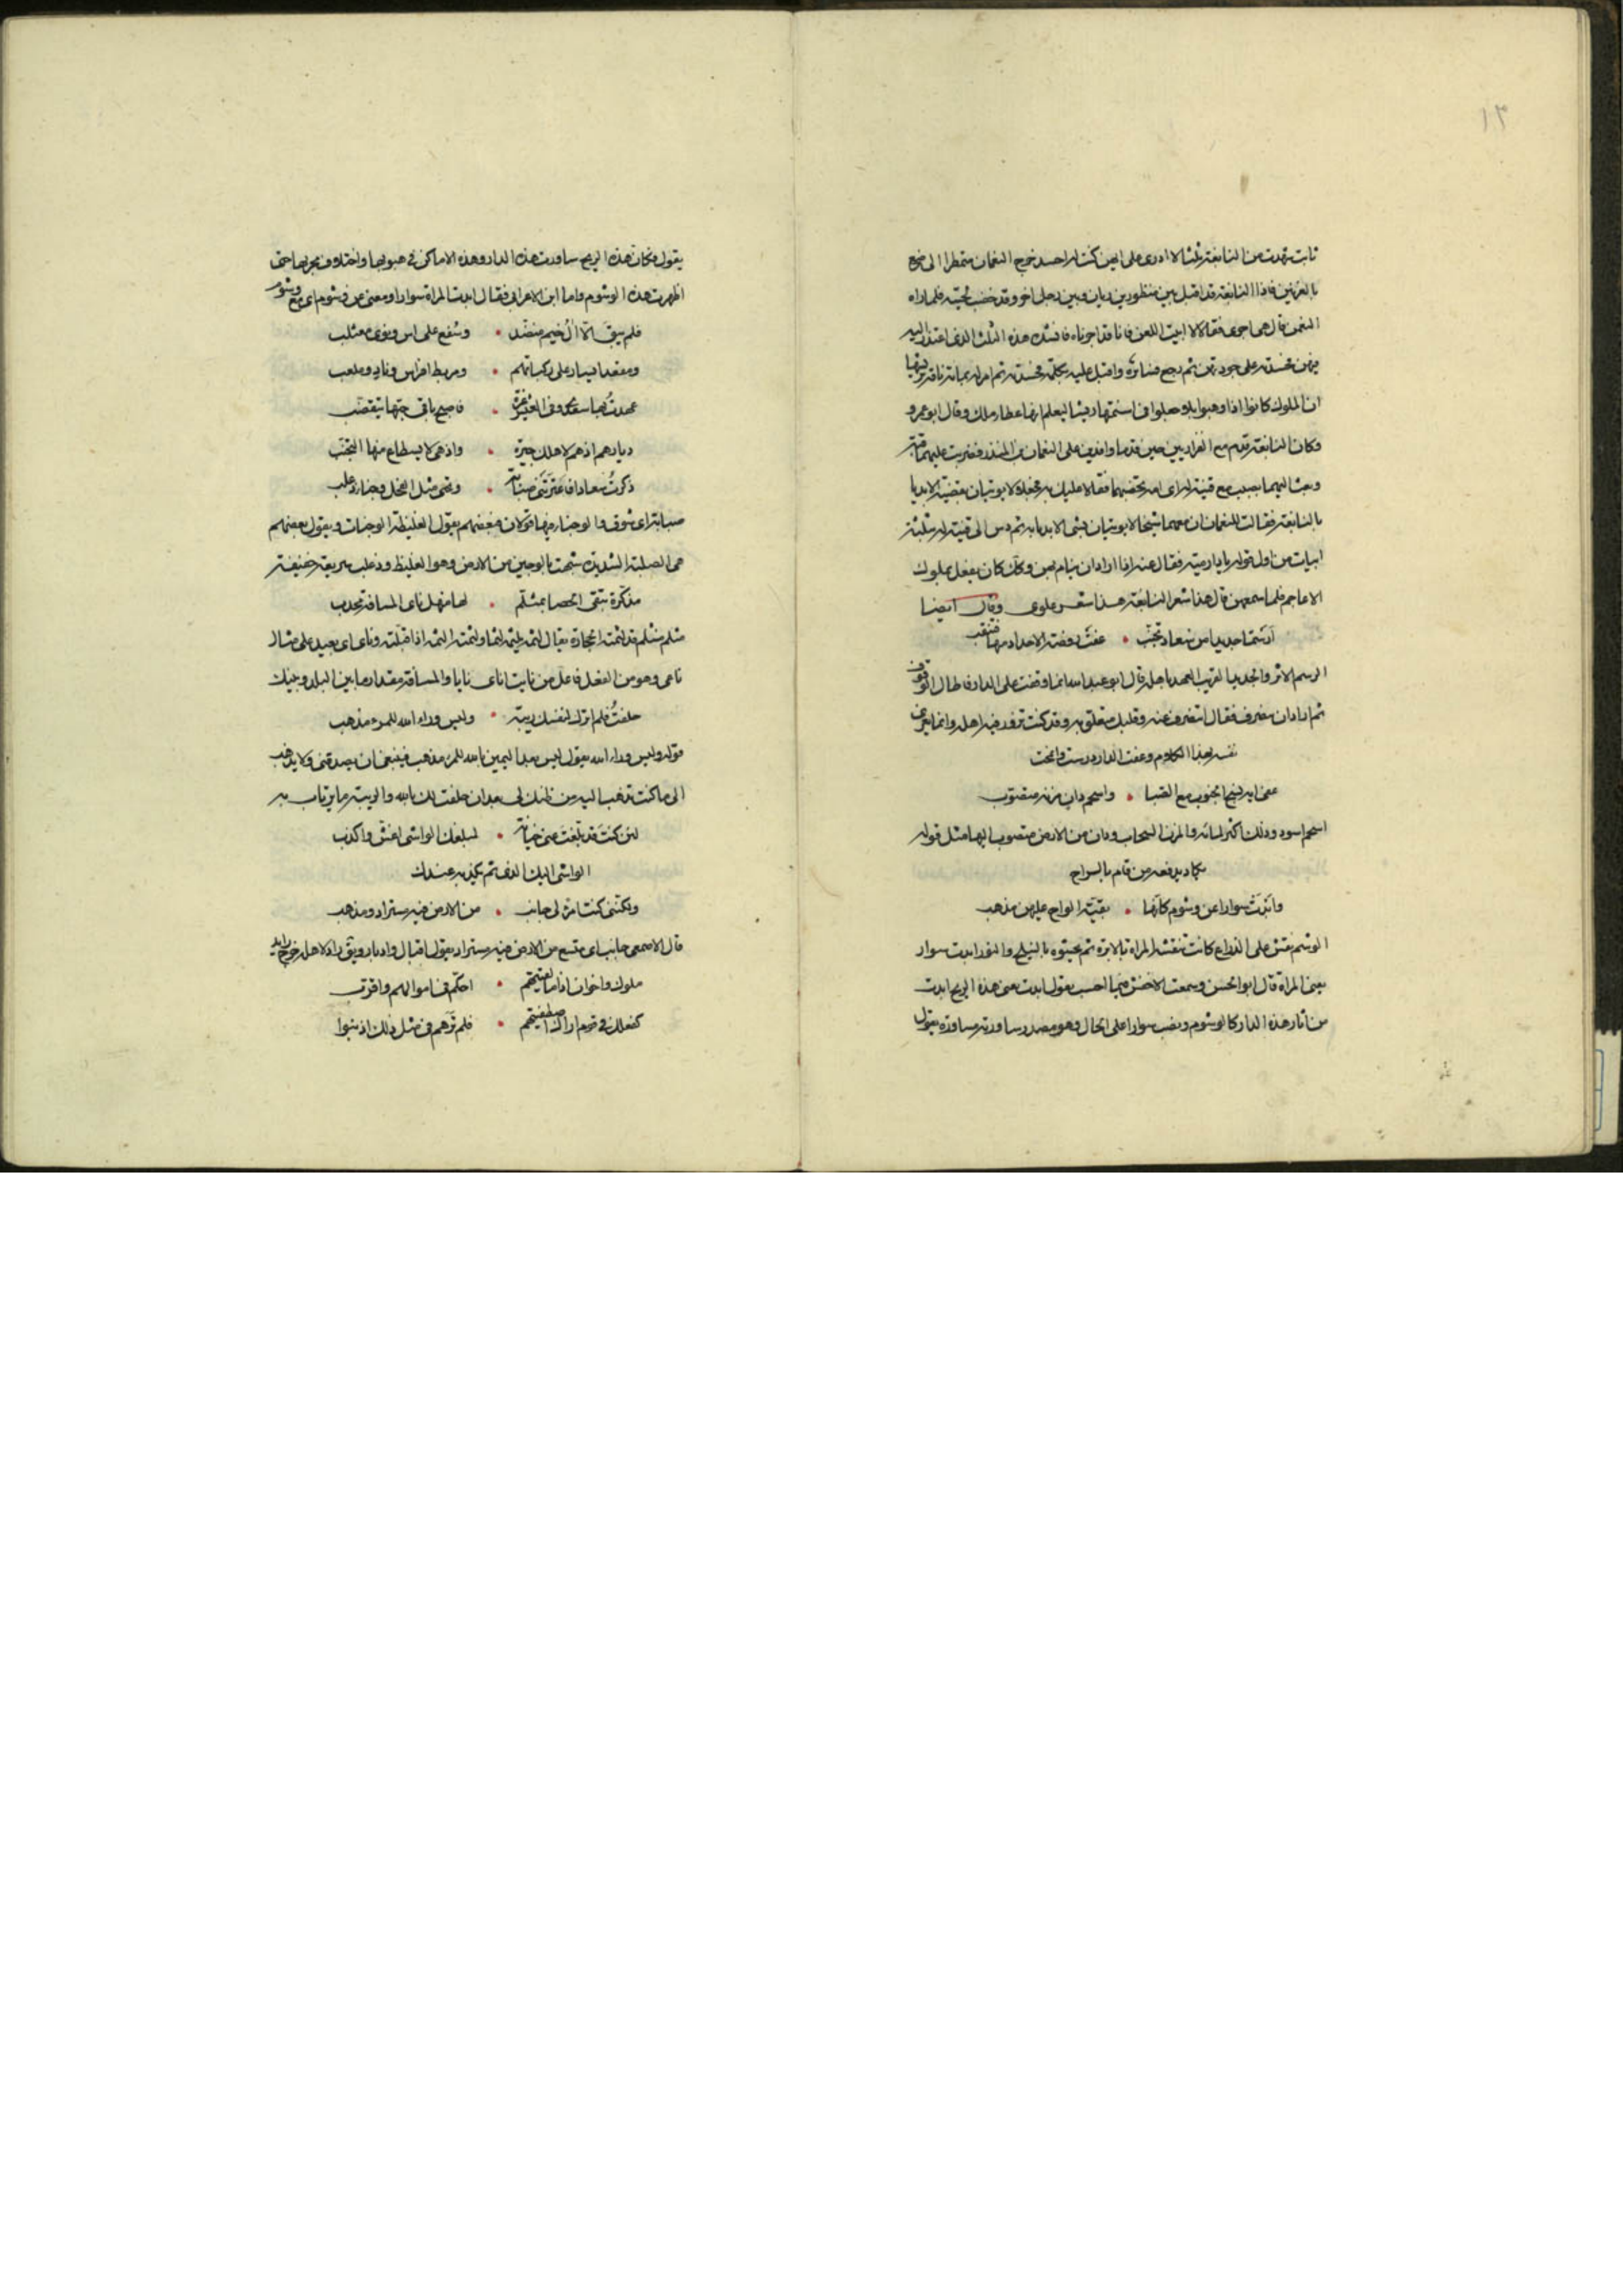 ١٣
ثابت شهدت من النابغة ثلثا لا ادرى على ايهن كنت له احسد خرج النعمان متمطرا الى
بالغريين فاذا النابغة قد اقبل بين منظور بن زبان وبين رجل اخر وقد خضب لحيته فلما راه
النعمن قال هى احرى فقالا لا ابيت اللعن فانا قد اجرناه فانشده هذه الثلث الذى اعتذر اليه
فيهن فحسدته على جودتهن ثم رجع فسايره واقبل عليه يكلمه فحسدته ثم امر له بماية ناقة
ان الملوك كانوا اذا وهبوا ابلا جعلوا فى اسنمتها ريشا ليعلم انها عطا ملك وقال ابو عمرو
وكان النابغة قدم مع الفزاريين حين قدما وافدين على النعمان بن المنذر فضربت عليهما قبة
وبعث اليهما بطيب مع قينة له
بالنابغة فقالت للنعمان ان معهما شيخا لا يوتيان بشى الا بدا به ثم دس الى قينة له ثلثة
ابيات من اول قوله يا دار مية فقال غنيه اذا اراد ان ينام بهن وكان كان يفعل بملوك
الاعاجم فلما سمعهن قال هذا شعر النابغة هذا شعر علوى وقال ايضا
ارسما جديدا من سعاد تجنب • عفت روضة الاجداد منها فيثقب
الرسم الاثر والجديد القريب العهد باهله قال ابو عبد الله انما وقف على الدار فاطال الوقوف
ثم اراد ان ينصرف فقال اتنصرف عنه وقلبك متعلق به وقد كنت تزور فيه اهله وانما يعزى
نفسه بهذا الكلام وعفت الدار درست وامحت
عفى ايه نسج الجنوب مع الصبا • واسحم دان مزنه متصوب
اسحم اسود وذلك اكثر لمائه والمزن السحاب ودان من الارض متصوب اليها مثل قوله
يكاد يدفعه من قام بالراح
وابدت سوارا عن وشوم كانها • بقية الواح عليهن مذهب
الوشم نقش على الذراع كانت تنقشه المراة بالابرة ثم تحشوه بالنيلج والنور ابدت سوار
يعنى المراة قال ابو الحسن وسمعت الاخفش فيما احسب يقول ابدت يعنى هذه الريح ابدت
من اثار هذه الدار كالوشوم ونصب سوارا على الحال وهو مصدر ساورته مساورة يقول
يقول فكان هذه الريح ساورت هذه الدار وهذه الاماكن فى هبوبها واختلاف مجريها حتى
اظهرت هذه الوشوم واما ابن الاعرابى فقال ابدت المراة سوارا ومعنى عن وشوم اى مع وشوم
فلم يبق الا ال خيم منضد • وسفع على اس ونوى معثلب
ومقعد ايسار على ركباتهم • ومربط افراس وناد وملعب
عهدت بها سعدى وفى العيش غرة • فاصبح باقى حبها يتقضب
ديارهم اذ هم لاهلك جيرة • واذ هى لا يسطاع منها التجنب
ذكرت سعادا فاعترتنى صبابة • وتحتى مثل الفحل وجناء ذعلب
صبابة اى شوق والوجناء فيها قولان فبعضهم يقول الغليظة الوجنات ويقول بعضهم
هى الصلبة الشديدة شبهت بالوجين من الارض وهو الغليظ وذعلب سريعة خفيفة
مذكرة تنفى الحصا بمثلم • لها منهل ناى المسافة مجدب
مثلم بمنسم قد لثمته الحجارة يقال لثمه يلثمه لثما ولثمته الثمه اذا قبلته وناى اى بعيد على مثال
ناعى وهو من الفعل فاعل من نايت اناى نايا والمسافة مقدار ما بين البلد وبينك
حلفت فلم اترك لنفسك ريبة • وليس وراء الله للمرء مذهب
قوله وليس وراء الله يقول ليس بعد اليمين بالله للمرء مذهب فينبغى ان يصدقنى ولا يذهب
الى ما كنت تذهب اليه من ظنك لى بعد ان حلفت لك بالله والريبة ما يرتاب به
لئن كنت قد بلغت عنى خيانة • لمبلغك الواشى اغش واكذب
الواشى اليك الذى تم بكذبه عندك
ولكننى كنت امرء لى جانب • من الارض فيه مستراد ومذهب
قال الاصمعى جانب اى متسع من الارض فيه مستراد يقول اقبال وادبار ويق راد لاهله خرج رايد
ملوك واخوان اذا ما لقيتهم • احكم فى اموالهم واقرب
كفعلك فى قوم اراك اصطفيتهم • فلم ترهم فى مثل ذلك اذنبوا